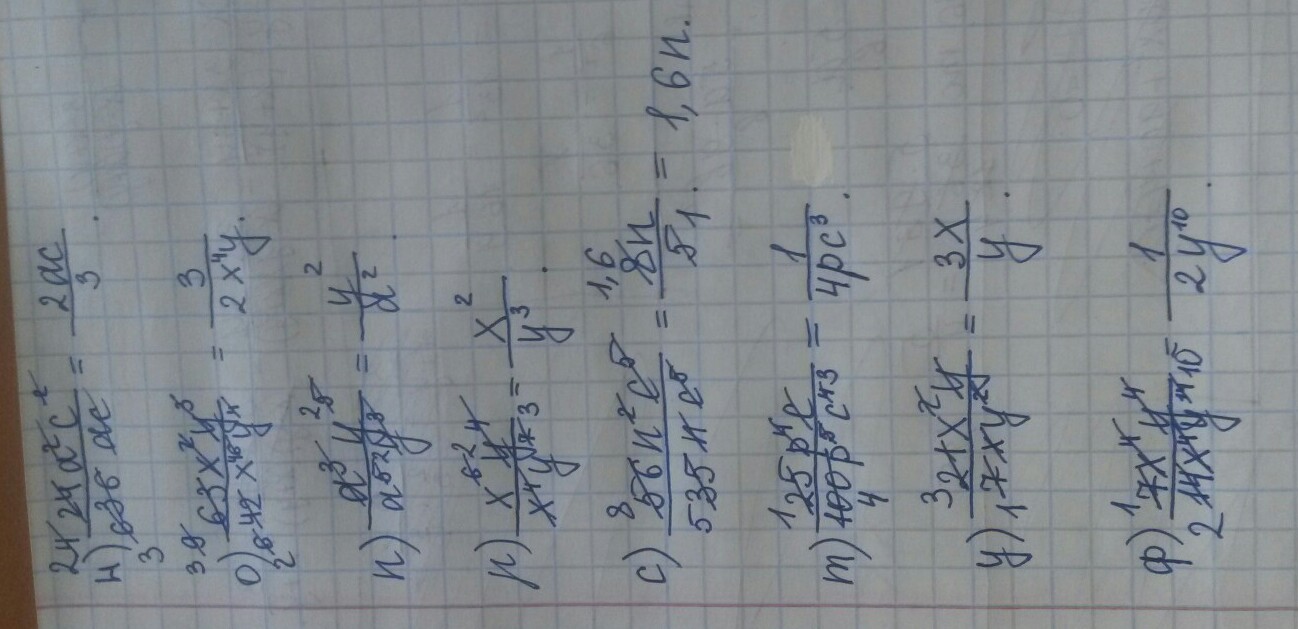 н) 24a²c²/36ac = 2ac/3.
о) 63x²y³/42x⁶y⁴ = 3/2x⁴y.
п) a³y⁵/a⁵y³ = y²/a².
р) x⁶y⁴/x⁴y⁷ = x²/y³.
с) 56n²c⁵/35nc⁵ = 8n/5 = 1,6n.
т) 25p⁴c/100p⁵c⁴ = 1/4pc³.
у) 21x²y/7xy² = 3x/y.
ф) 7x⁴y⁴/14x⁴y¹⁴ = 1/2y¹⁰.